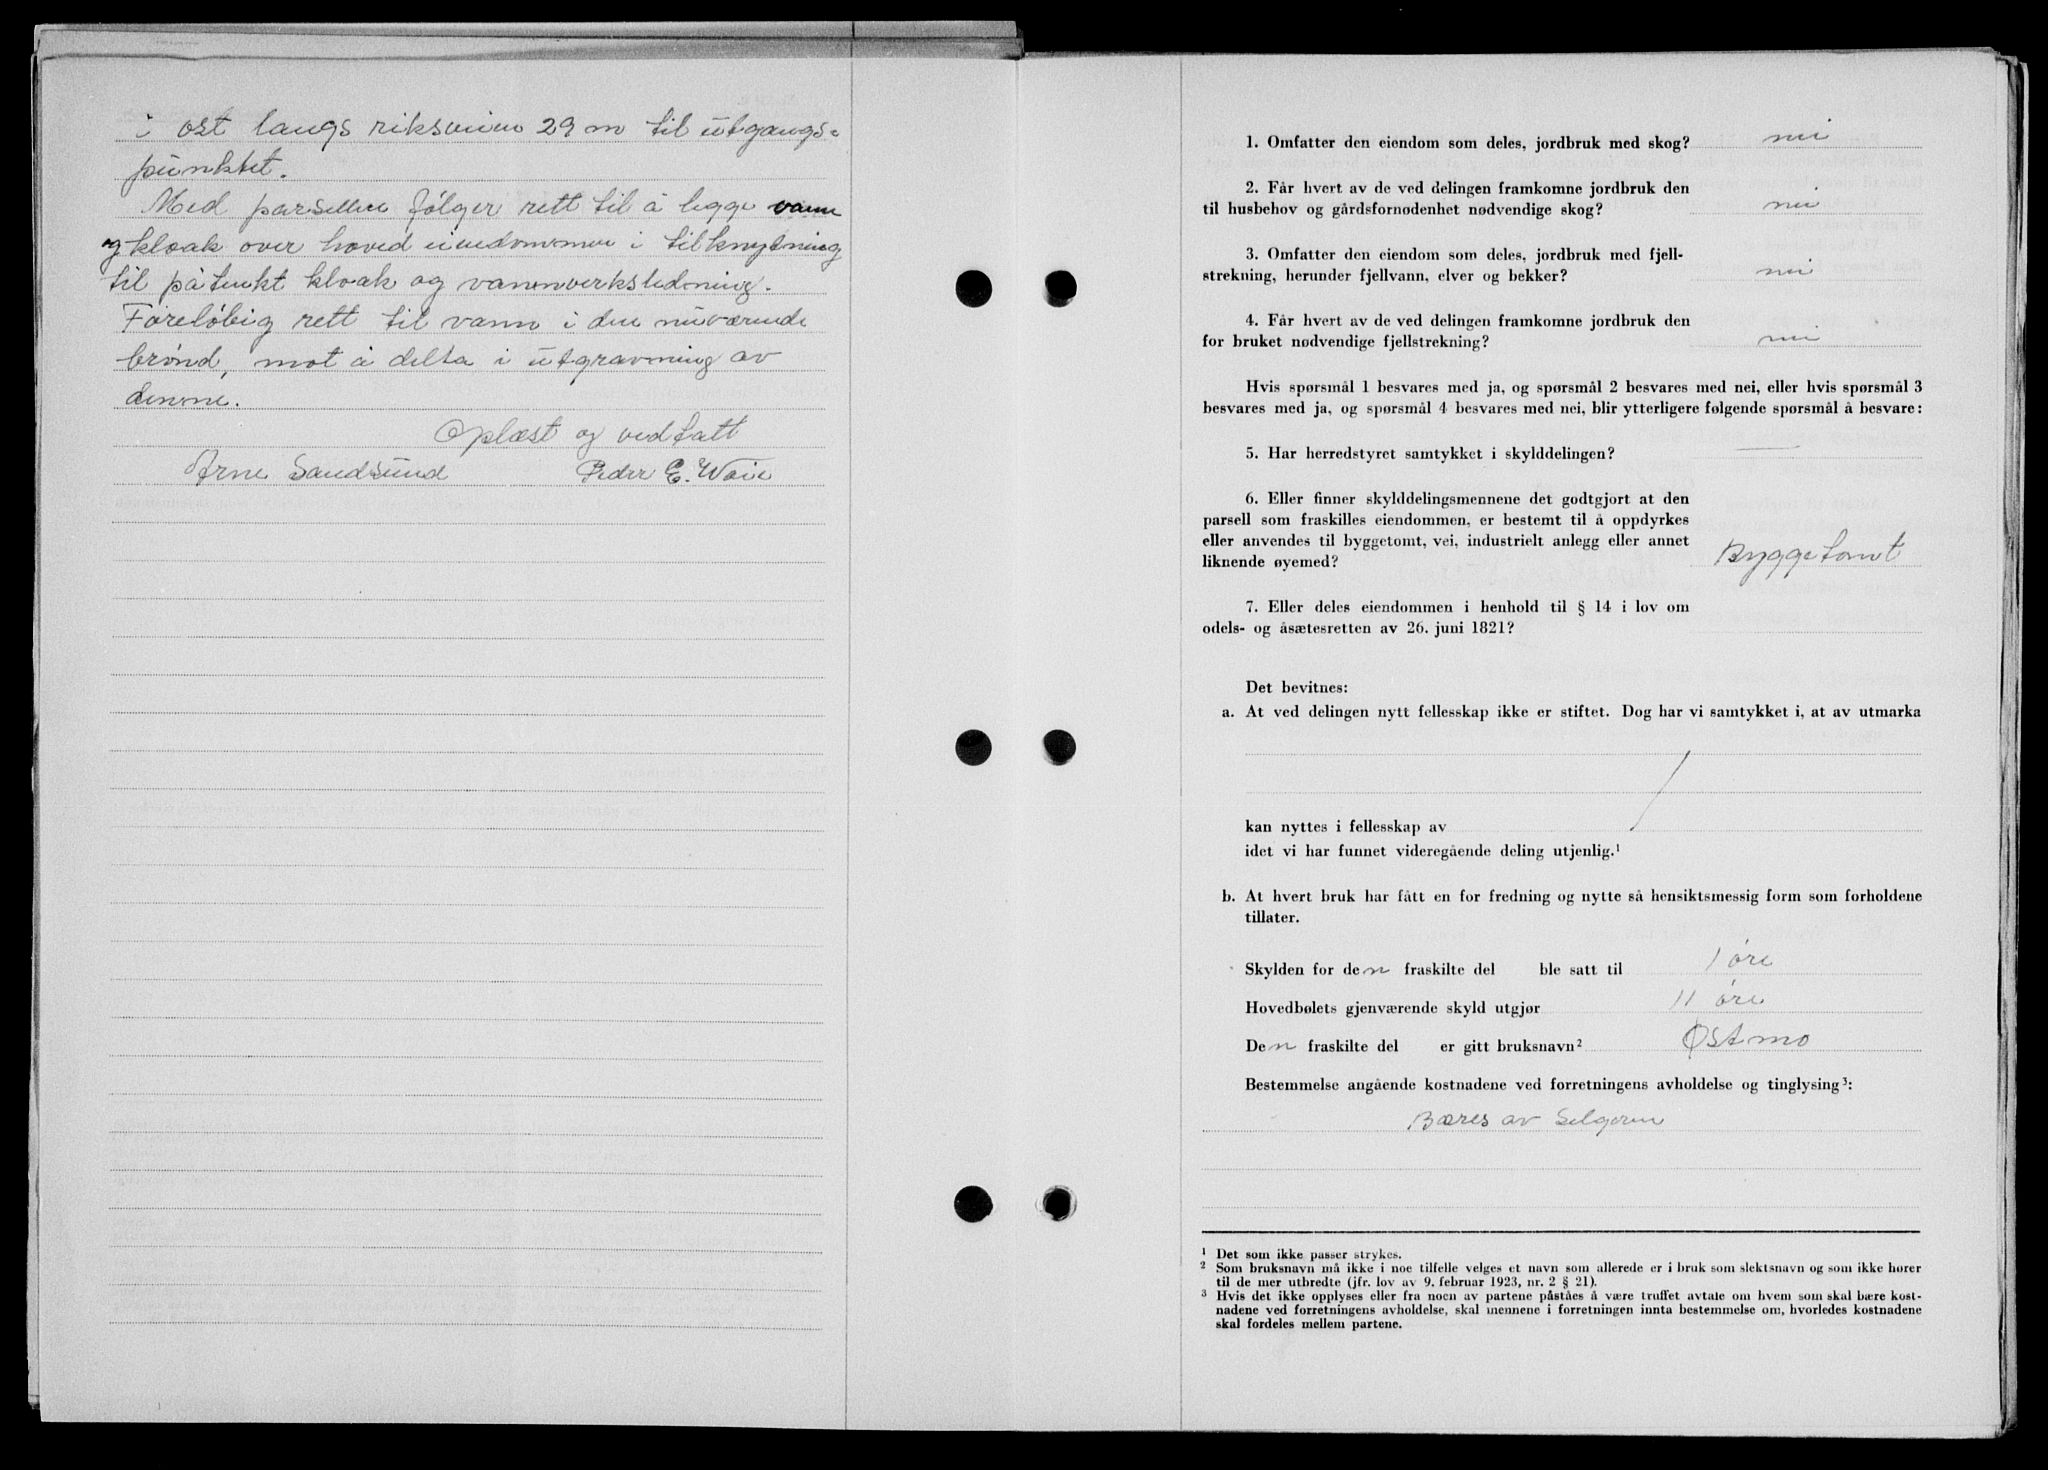 i ost langs riksveien 29 m til utgangs=
punktet.
Med parsellen følger rett til å legge vann
og kloak over hoved eiendommen i tilknytning
til påtenkt kloak og vannverksledning.
Foreløbig rett til vann i den nuværende
brønd, mot å delta i utgravning av
denne.
Oplæst og vedtatt
Arne Sandsund Peder E.
1. Omfatter den eiendom som deles, jordbruk med skog? nei
2. Får hvert av de ved delingen framkomne jordbruk den
til husbehov og gårdsfornødenhet nødvendige skog? nei
3. Omfatter den eiendom som deles, jordbruk med fjell-
strekning, herunder fjellvann, elver og bekker? nei
4. Får hvert av de ved delingen framkomne jordbruk den
for bruket nødvendige fjellstrekning? nei
Hvis spørsmål 1 besvares med ja, og spørsmål 2 besvares med nei, eller hvis spørsmål 3
besvares med ja, og spørsmål 4 besvares med nei, blir ytterligere følgende spørsmål å besvare:
5. Har herredstyret samtykket i skylddelingen? —
6. Eller finner skylddelingsmennene det godtgjort at den
parsell som fraskilles eiendommen, er bestemt til å oppdyrkes
eller anvendes til byggetomt, vei, industrielt anlegg eller annet
liknende øyemed? Byggetomt
7. Eller deles eiendommen i henhold til § 14 i lov om
odels- og åsætesretten av 26. juni 1821?
Det bevitnes:
a. At ved delingen nytt fellesskap ikke er stiftet. Dog har vi samtykket i, at av utmarka
kan nyttes i fellesskap av
idet vi har funnet videregående deling utjenlig.¹
b. At hvert bruk har fått en for fredning og nytte så hensiktsmessig form som forholdene
tillater.
Skylden for den fraskilte del ble satt til 1 øre
Hovedbølets gjenværende skyld utgjør 11 øre
Den fraskilte del er gitt bruksnavn² Østmo
Bestemmelse angående kostnadene ved forretningens avholdelse og tinglysing³:
Bæres av Selgeren
¹ Det som ikke passer strykes.
² Som bruksnavn må ikke i noe tilfelle velges et navn som allerede er i bruk som slektsnavn og som ikke hører
til de mer utbredte (jfr. lov av 9. februar 1923, nr. 2 § 21).
³ Hvis det ikke opplyses eller fra noen av partene påståes å være truffet avtale om hvem som skal bære kost-
nadene ved forretningens avholdelse, skal mennene i forretningen innta bestemmelse om, hvorledes kostnadene
skal fordeles mellem partene.